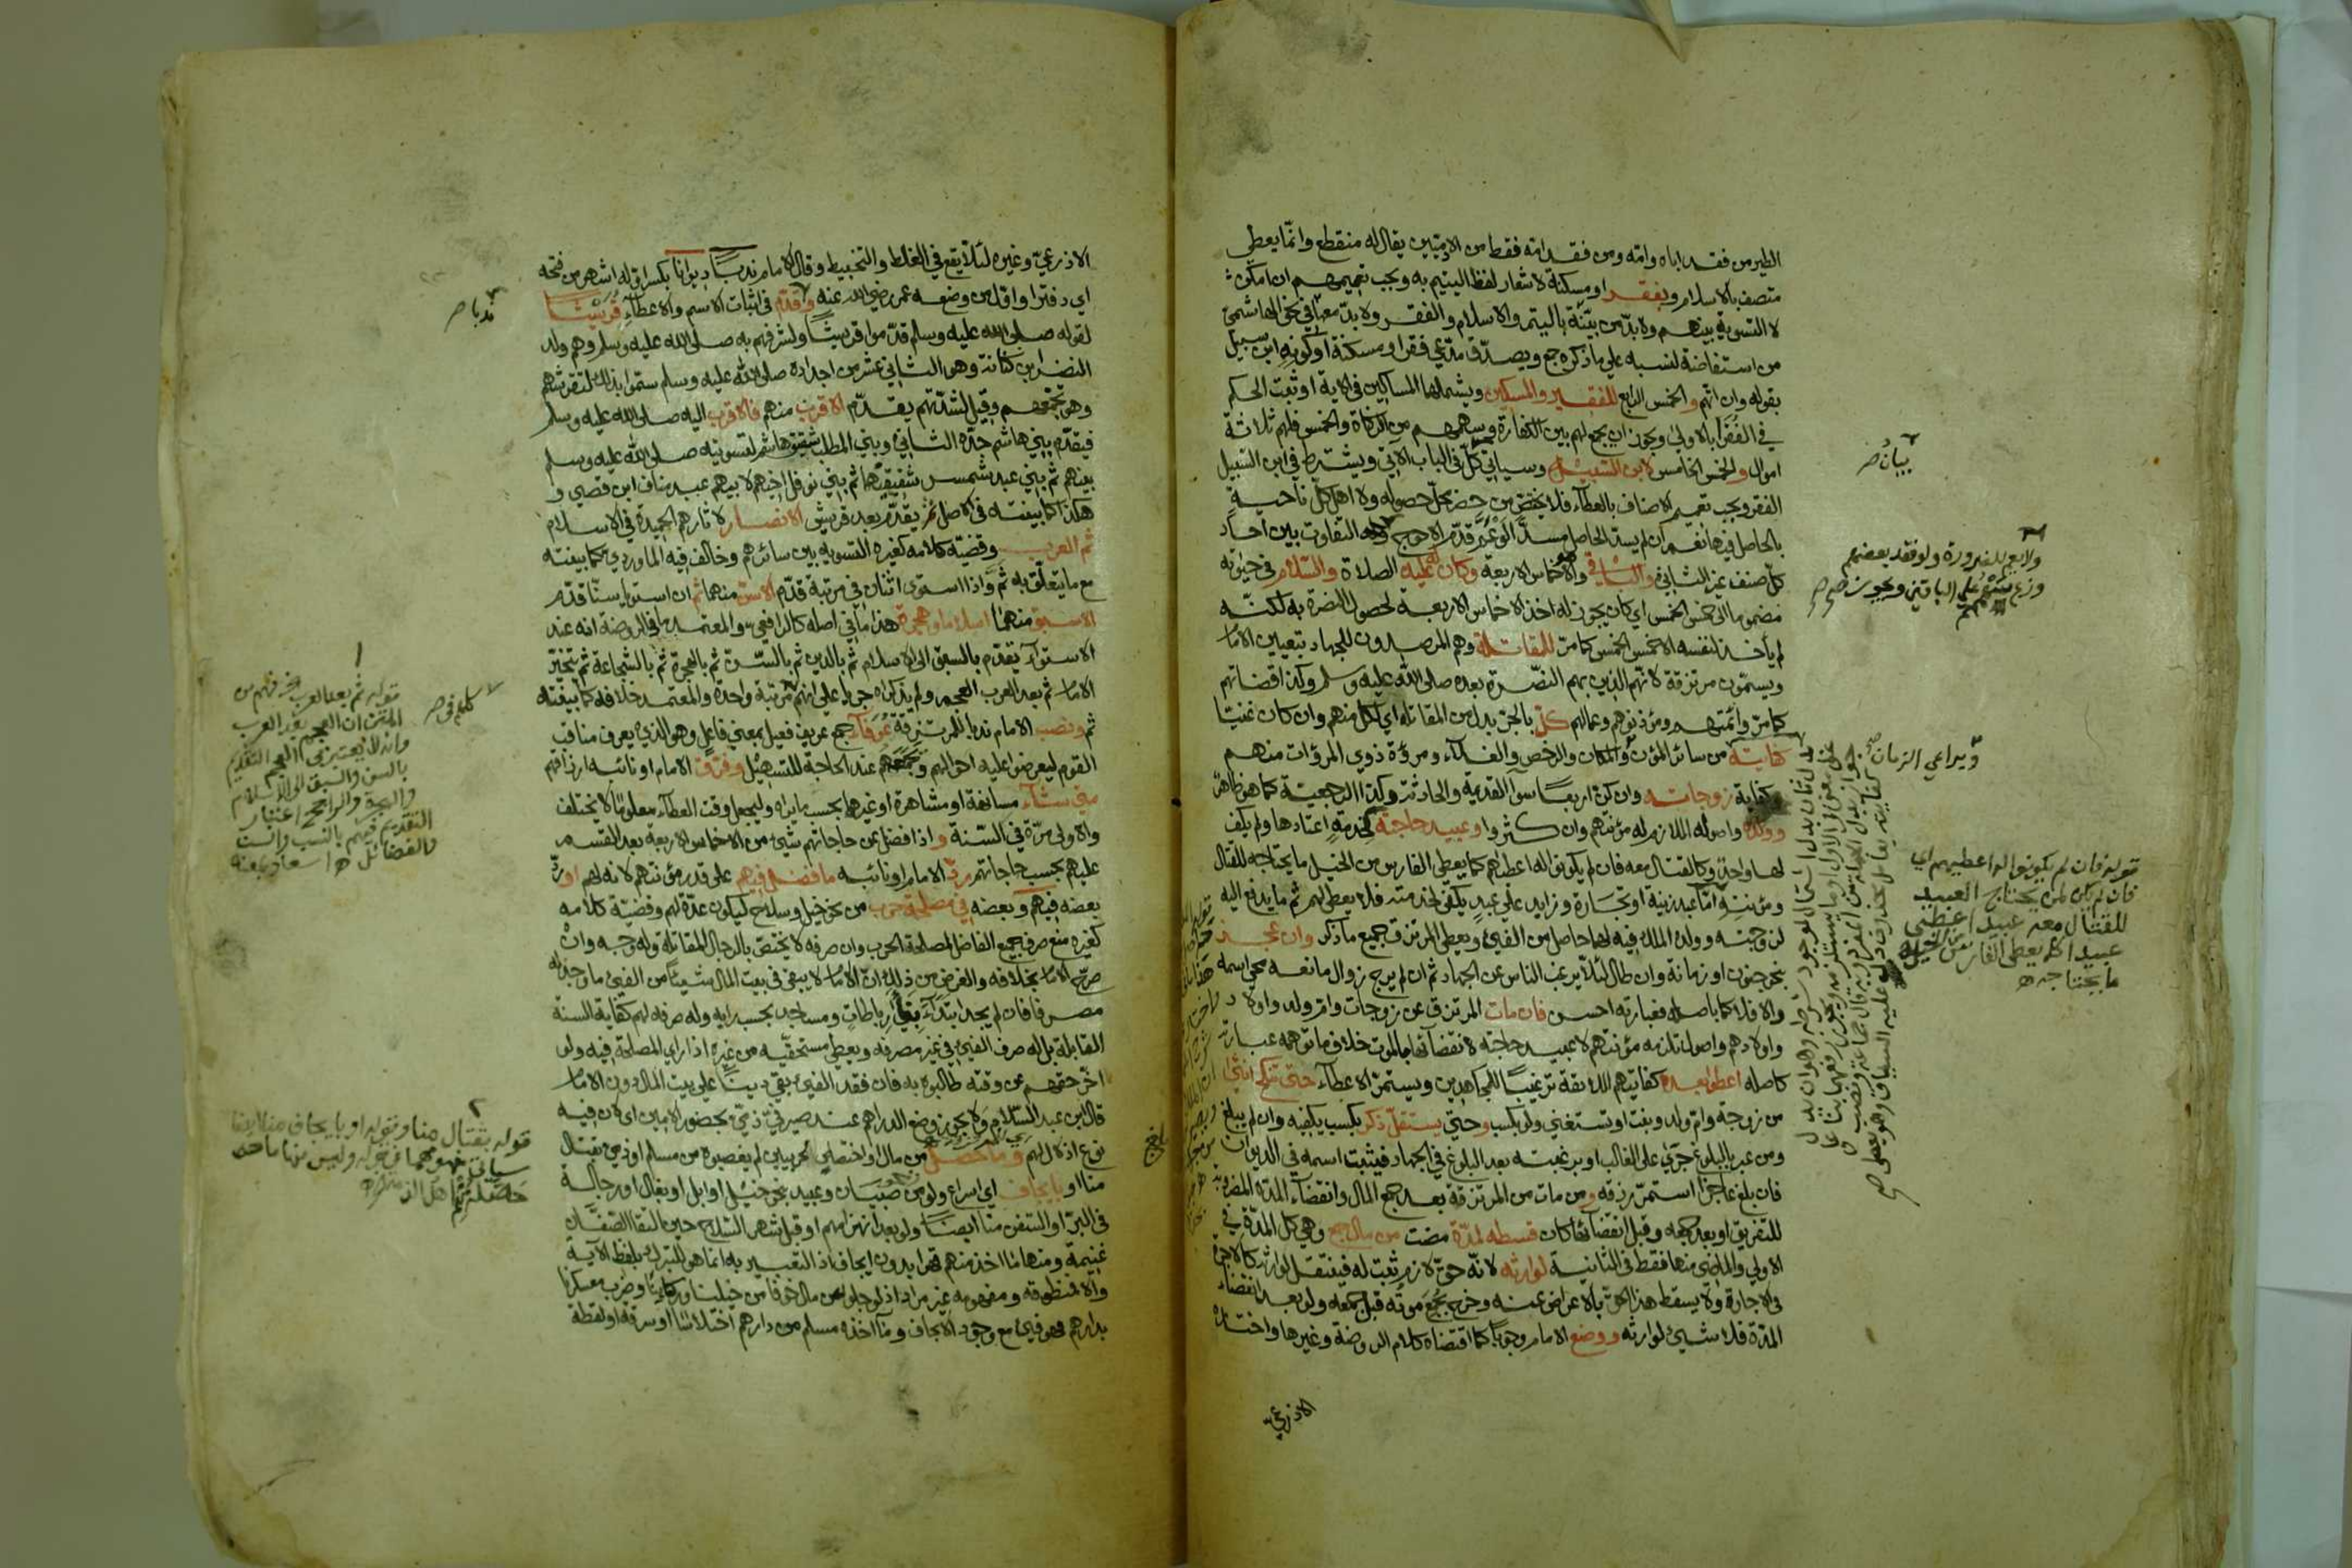 الطير من فقد اباه وامه ومن فقد امه فقط من الادميين يقال له منقطع وانما يعطي
متصف بالاسلام وبفقر او مسكنة لاشعار لفظ اليتيم به ويجب تعميمهم ان امكن
لا التسوية بينهم ولا بد من بينة باليتم والاسلام والفقر ولا بد معها في نحو الهاشمي
من استفاضة لنسبه علي ما ذكره جمع ويصدق مدعي فقر او مسكنة او كونه ابن سبيل
بقوله وان اتهم والخمس الرابع للفقير والمسكين ويشملهما المساكين في الاية او ثبت الحكم
في الفقرا بالاولي ويجوز ان يجمع لهم بين الكفارة وسهمهم من الزكاة والخمس فلهم ثلاثة
اموال والخمس الخامس لابن السبيل وسياتي كل في الباب الاتي ويشترط في ابن السبيل
الفقر ويجب تعميم الاصناف بالعطاء فلا يختص من حضر محل حصوله ولا اهل كل ناحية
بالحاصل فيها نعم ان لم يسد الحاصل مسدا لو عمم قدم الاحوج التفاوت بين احاد
كل صنف غير الثاني والباقي والاخماس الاربعة وكان له عليه الصلاة والسلام في حيوته
مضموما الي خمس الخمس اي كان يجوز له اخذ الاخماس الاربعة لحصول النصرة به لكنه
لم يأخذ لنفسه الا خمس الخمس كما مر للمقاتلة وهم المرصدون للجهاد بتعيين الامام
ويسمون مرتزقة لانهم الذين بهم النصرة بعده صلى الله عليه وسلم وكذا قضاتهم
كما مر وائمتهم ومؤذنوهم وعمالهم كل بالجر بدل من المقاتلة اي لكل منهم وان كان غنيا
كفايته من سائر المؤن والمكان والرخص والغلاء ومروة ذوي المروات منهم
وكفاية زوجاته وان كن اربعا سوا القديمة والحادثة وكذا الرجعية كما هو ظاهر
وولده واصوله اللازم له مؤنتهم وان كثروا وعبيد حاجته لخدمة اعتادها ولم يكف
لها واحد وكالقتال معه فان لم يكونوا له اعطاهم كما يعطى الفارس من الخيل ما يحتاجه للقتال
ومؤنته اما عبد زينة او تجارة وزايد علي عبد يكفي لخدمته فلا يعطى لهم ثم ما يدفع اليه
لزوجته وولده الملك فيه لهما حاصل من الفيء ويعطى المرتزق جميع ما ذكر وان عجز
بنحو جنون او زمانة وان طال لئلا يرغب الناس عن الجهاد ثم ان لم يرج زوال مانعه محي اسمه
والا فلا كما باصله فعبارته احسن فان مات المرتزق عن زوجات وام ولد واولاد
واولادهم واصول تلزمه مؤنتهم لا عبيد حاجته لانقضائها بالموت خلاف ما توهمه عبارته
كاصله اعطوا بعده كفايتهم اللائقة ترغيبا للمجاهدين ويستمر الاعطاء حتى تنكح انثى
من زوجة وام ولد وبنت او تستغني ولو بكسب وحتى يستقل ذكر بكسب يكفيه وان لم يبلغ
ومن عبر بالبلوغ جرى على الغالب او برغبته بعد البلوغ في الجهاد فيثبت اسمه في الديوان
فان بلغ عاجزا استمر رزقه ومن مات من المرتزقة بعد جمع المال وانقضاء المدة المضروبة
للتفريق او بعد جمعه وقبل انقضائها كان قسطه لمدة مضت من مال جمع وهي كل المدة في
الاولي والماضي منها فقط في الثانية لوارثه لانه حق لازم ثبت له فينتقل لوارثه كالاجرة
في الاجارة ولا يسقط هذا الحق بالاعراض عنه وخرج بجمع موته قبل جمعه ولو بعد انقضاء
المدة فلا شيئ لوارثه ووضع الامام وجوبا كما اقتضاه كلام الروضة وغيرها واختاره
الاذرعي
بيان صح
ولا بيع للضرورة ولو فقد بعضهم
ويراعي الزمان
قوله فان لم يكونوا له اعطيهم اي
فان لم يكن لمن يحتاج العبيد
للقتال معه عبيد اعطى
عبيدا كما يعطى الفارس من الخيل
ما يحتاجه
الاذرعي وغيره لئلا يقع في الغلط والتخبيط وقال الامام ندبا ديوانا بكسر اوله اشهر من فتحه
اي دفترا واول من وضعه عمر رضي الله عنه وقدم في اثبات الاسم والاعطاء قريشا
لقوله صلى الله عليه وسلم قدموا قريشا ولشرفهم به صلى الله عليه وسلم وهم ولد
النضر ابن كنانة وهو الثاني عشر من اجداده صلى الله عليه وسلم سموا بذلك لتقرشهم
وهو تجمعهم وقيل لشدتهم يقدم الاقرب منهم فالاقرب اليه صلى الله عليه وسلم
فيقدم بني هاشم جده الثاني وبني المطلب شقيق هاشم لتسويته صلى الله عليه وسلم
بينهم ثم بني عبد شمس شقيقهما ثم بني نوفل اخيهم لابيهم عبد مناف ابن قصي و
هكذا كما بينته في الاصل ثم يقدم بعد قريش الانصار لاثارهم الحميدة في الاسلام
ثم العرب وقضية كلامه كغيره التسوية بين سائرهم وخالف فيه الماوردي كما بينته
مع ما يتعلق به ثم واذا استوى اثنان في مرتبة قدم الاسن منهما ثم ان استويا سنا قدم
الاسبق منهما اسلاما وهجرة هذا ما في اصله كالرافعي والمعتمد ما في الروضة انه عند
الاستواء يقدم بالسبق الى الاسلام ثم بالدين ثم بالسن ثم بالهجرة ثم بالشجاعة ثم يتخير
الامام ثم بعد العرب العجم ولم يذكراه جريا علي انهم مرتبة واحدة والمعتمد خلافه كما بينته
ثم ونصب الامام ندبا للمرتزقة عرفاء جمع عريف فعيل بمعني فاعل وهو الذي يعرف مناقب
القوم ليعرضوا عليه احوالهم ويجمعهم عند الحاجة للتسهيل وفرق الامام او نائبه ارزاقهم
متى شاء مسانهة او مشاهرة او غيرهما بحسب ما يراه وليجعل وقت العطاء معلوما لا يختلف
والاولى مرة في السنة واذا افضل عن حاجاتهم شيئ من الاخماس الاربعة بعد القسم
عليهم بحسب حاجاتهم رد الامام او نائبه ما فضل فيهم على قدر مؤنتهم لانه لهم او رد
بعضه فيهم وبعضه في مصلحة حرب من نحو خيل وسلاح ليكون عدة لهم وقضية كلامه
كغيره منع صرف جميع الفاضل لمصلحة الحرب وان صرفه لا يختص بالرجال المقاتلة وله وجه وان
صرح الامام بخلافه والغرض من ذلك ان الامام لا يبقي في بيت المال شيئا من الفيئ ما وجد له
مصرفا فان لم يجد ابتداء بناء رباطات ومساجد بحسب رايه وله صرفه لهم كفاية السنة
القابلة بل له صرف الفيئ في غير مصرفه ويعطي مستحقيه من غيره اذا راى المصلحة فيه ولو
اخر حقهم عن وقته طالبوه به فان فقد الفيئ بقي دينا علي بيت المال دون الامام
قال ابن عبد السلام ولا يجوز وضع الدراهم عند صيرفي ذمي بحضور الامين اي لان فيه
نوع اذلال لهم وما حصل من مال او اختصاص لحربيين لم يغصبوه من مسلم او ذمي بقتال
منا او بايجاف اي اسراع ولو من صبيان وعبيد بنحو خيل او ابل او بغال او رجالة
في البر او السفن منا ايضا ولو بعد انهزامهم او قبل شهر السلاح حين التقا الصفان
غنيمة ومنها ما اخذ منهم قهرا بدون ايجاف اذ التعبير به انما هو للتبرك بلفظ الآية
والا فمنطوقه ومفهومه غير مراد اذ لو جلوا عن مال خوفا من خيلنا وركابنا وضرب معسكرنا
بدارهم فهو فيئ مع وجود الايجاف وما اخذه مسلم من دارهم اختلاسا او سرقة او لقطة
ندبا صح
قوله ثم بعد العرب
المتن ان العجم بعد العرب
وانه لا يعتبر في العجم التقديم
بالسن والسبق الى الاسلام
والهجرة والراجح اعتبار
التقديم فيهم بالنسب والسن
والفضائل
قوله بقتال منا وقوله او بايجاف منا